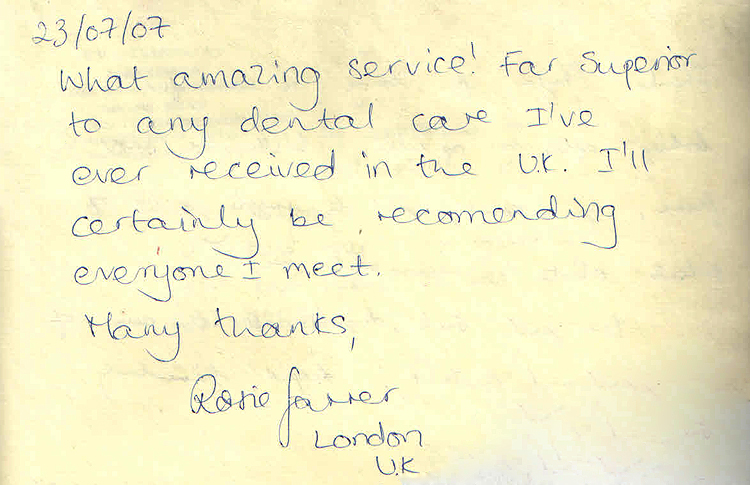 23/07/07
What amazing service! Far Superior
to any dental care I've
ever received in the U.K. I'll
certainly be recomending
everyone I meet.
Many thanks,
Rosie
London
U.K